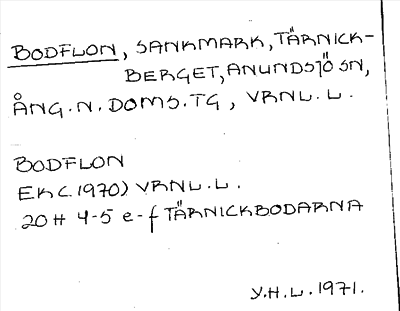 BODFLON, SANKMARK, TÄRNICK-
BERGET, ANUNDSJÖ SN,
ÅNG.N. DOMS.TG, VRNL.L.
BODFLON
EK (1970) VRNL.L.
20H 4-5 e-f TÄRNICKBODARNA
Y.H.L. 1971.